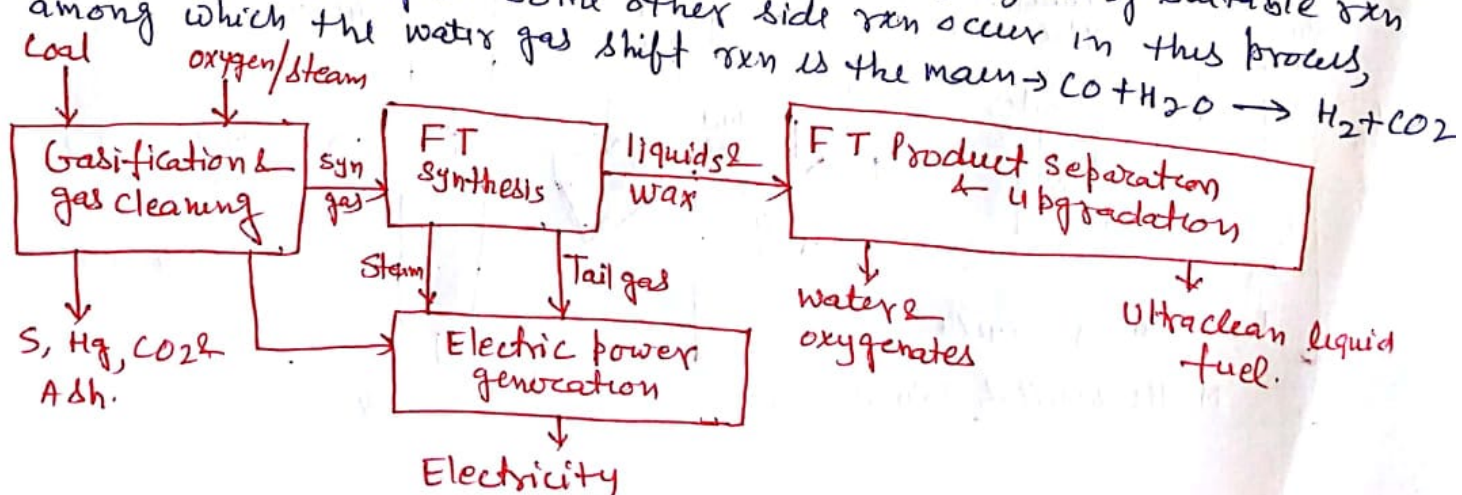 other side rxn occur in this process,
among which the water gas shift rxn is the main → CO + H2O → H2 + CO2
Coal
oxygen/steam
Gasification &
gas cleaning
syn
gas
FT
Synthesis
liquids &
wax
F T. Product separation
& upgradation
Steam
Tail gas
S, Hg, CO2 &
Ash.
Electric power
generation
Electricity
water &
oxygenates
Ultraclean liquid
fuel.